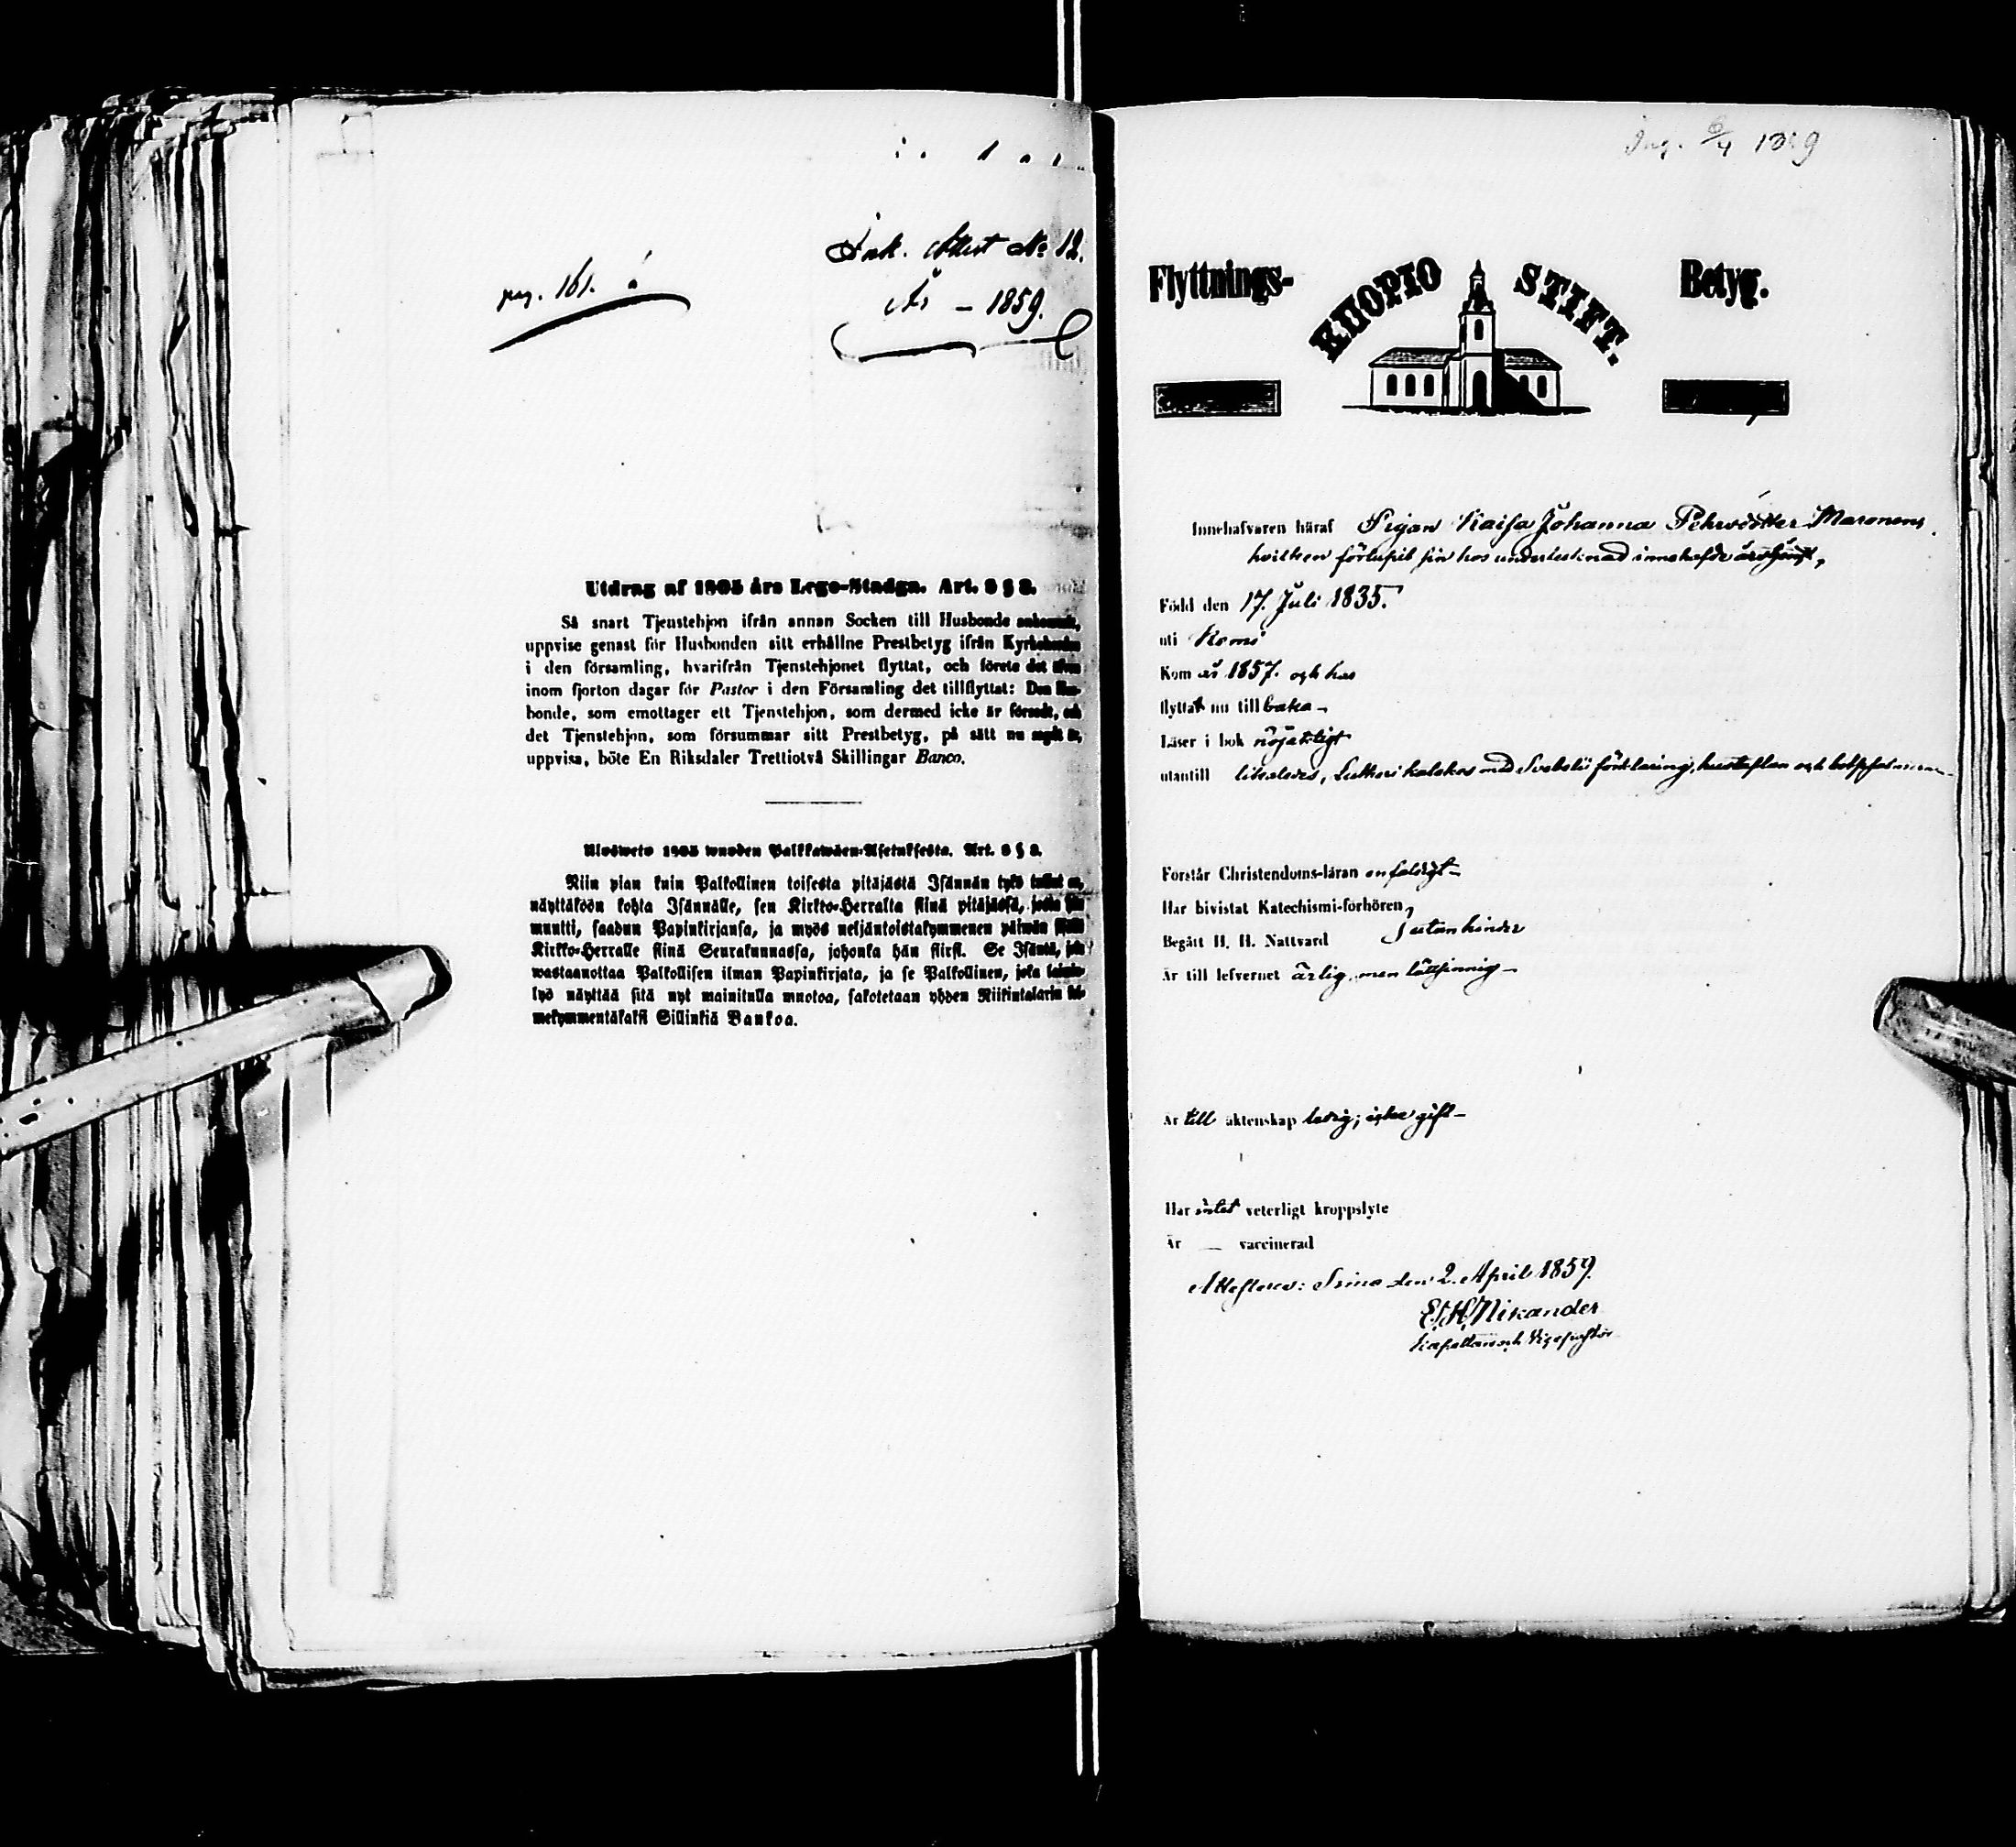 pag. 161.
Ink. Attest No 12.
År – 1859.
Utdrag af 1805 års Lego-Stadga. Art. 8 § 8.
Så snart Tjenstehjon ifrån annan Socken till Husbonde ankommit,
uppvise genast för Husbonden sitt erhållne Prestbetyg ifrån Kyrkoherden
i den församling, hvarifrån Tjenstehjonet flyttat, och förete det
inom fjorton dagar för Pastor i den Församling det tillflyttat: Den Hus-
bonde, som emottager ett Tjenstehjon, som dermed icke är försedt, och
det Tjenstehjon, som försummar sitt Prestbetyg, på sätt nu sagdt är,
uppvisa, böte En Riksdaler Trettiotvå Skillingar Banco.
Ulosweto 1805 wuoden Palkkawäen-Asetuksesta. Art. 8 § 8.
Niin pian kuin Palkollinen toisesta pitäjästä Isännän tykö tullut on,
näyttäköön kohta Isännälle, sen Kirkko-Herralta siinä pitäjässä, josta hän
muutti, saadun Papinkirjansa, ja myös neljäntoistakymmenen päiwän
Kirkko-Herralle siinä Seurakunnassa, johonka hän siirsi. Se Isäntä, joka
wastaanottaa Palkollisen ilman Papinkirjata, ja se Palkollinen, joka laimin-
lyö näyttää sitä nyt mainitulla muotoa, sakotetaan yhden Riikintalarin kol-
mekymmentäkaksi Sillinkiä Bankoa.
Ing. 6/4 1859
Flyttnings- KUOPIO STIFT. Betyg.
Innehafvaren häraf Pigan Kaisa Johanna Pehrsdotter Maronen,
hvilken förlupit sin hos undertecknad innehafde årstjenst,
Född den 17. Juli 1835.
uti Kemi
Kom år 1857. och har
flyttat nu till baka –
Läser i bok nöjaktigt
utantill likaledes, Lutheri katekes med Svebelii förklaring, hustaflan och botpsalmerna –
Förstår Christendoms-läran enfaldigt –
Har bivistat Katechismi-förhören,
Begått H. H. Nattvard } utan hinder
Är till lefvernet ärlig, men lättsinnig –
Är till äktenskap ledig; icke gift –
Har intet veterligt kroppslyte
Är — vaccinerad
Attesteras: Simo den 2. April 1859.
E. H. Nikander
Kapellan och Vicepastor